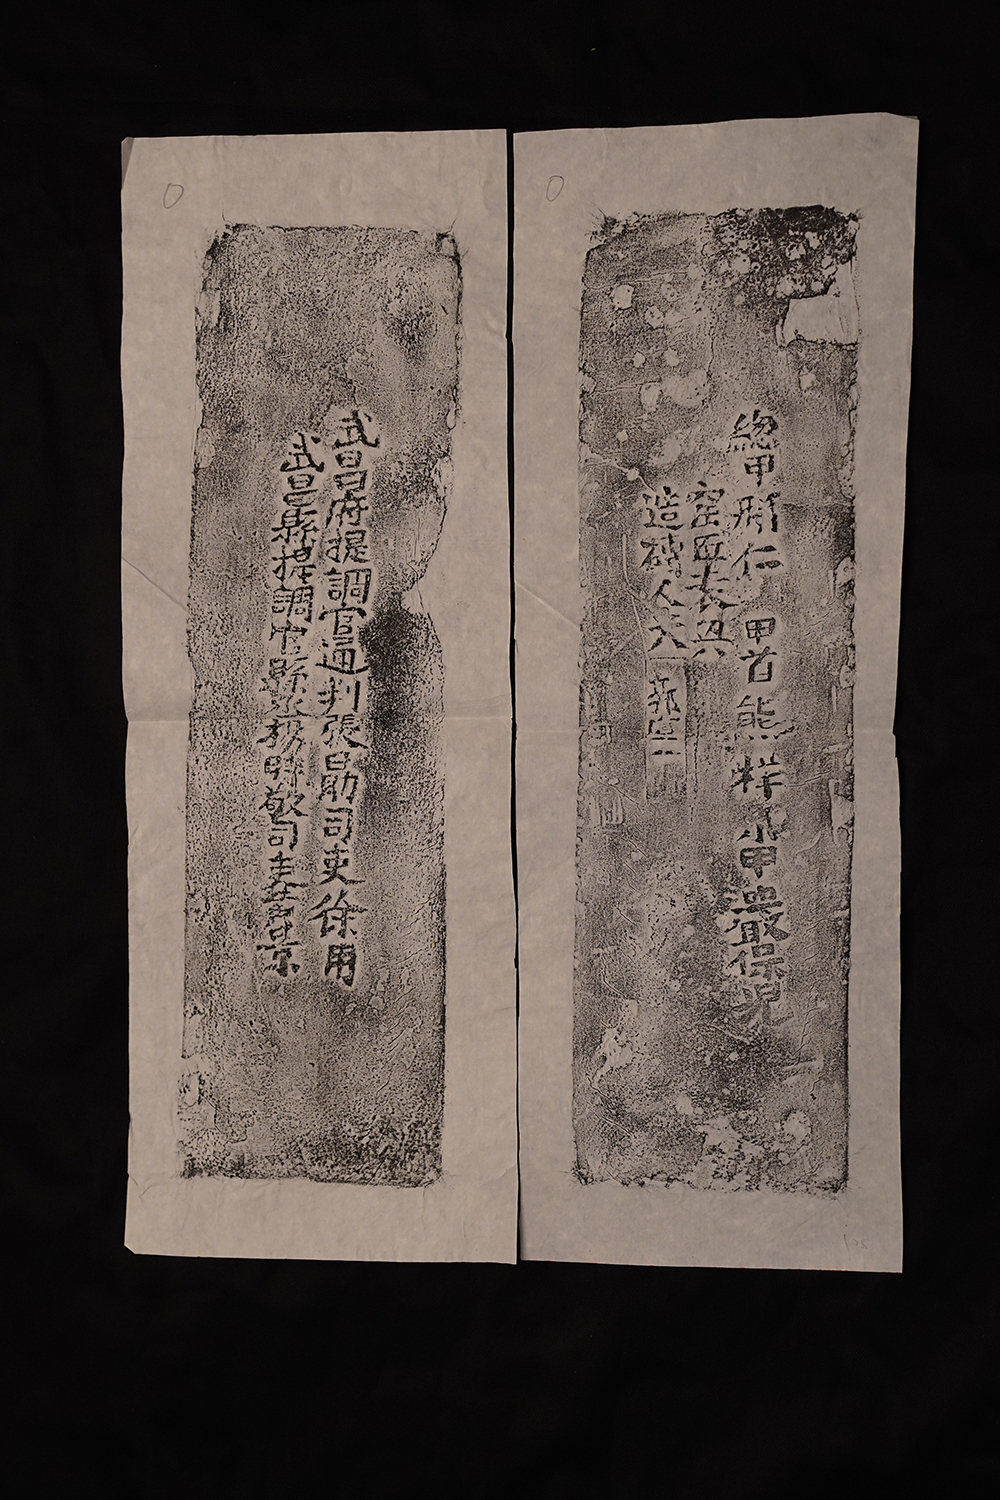 總甲邢仁 甲首熊祥 小甲嚴保兒
窑匠袁興
造磚人夫 郭
武昌府提調官通判張勗司吏徐用
武昌縣提調官縣丞楊時敬司吏景